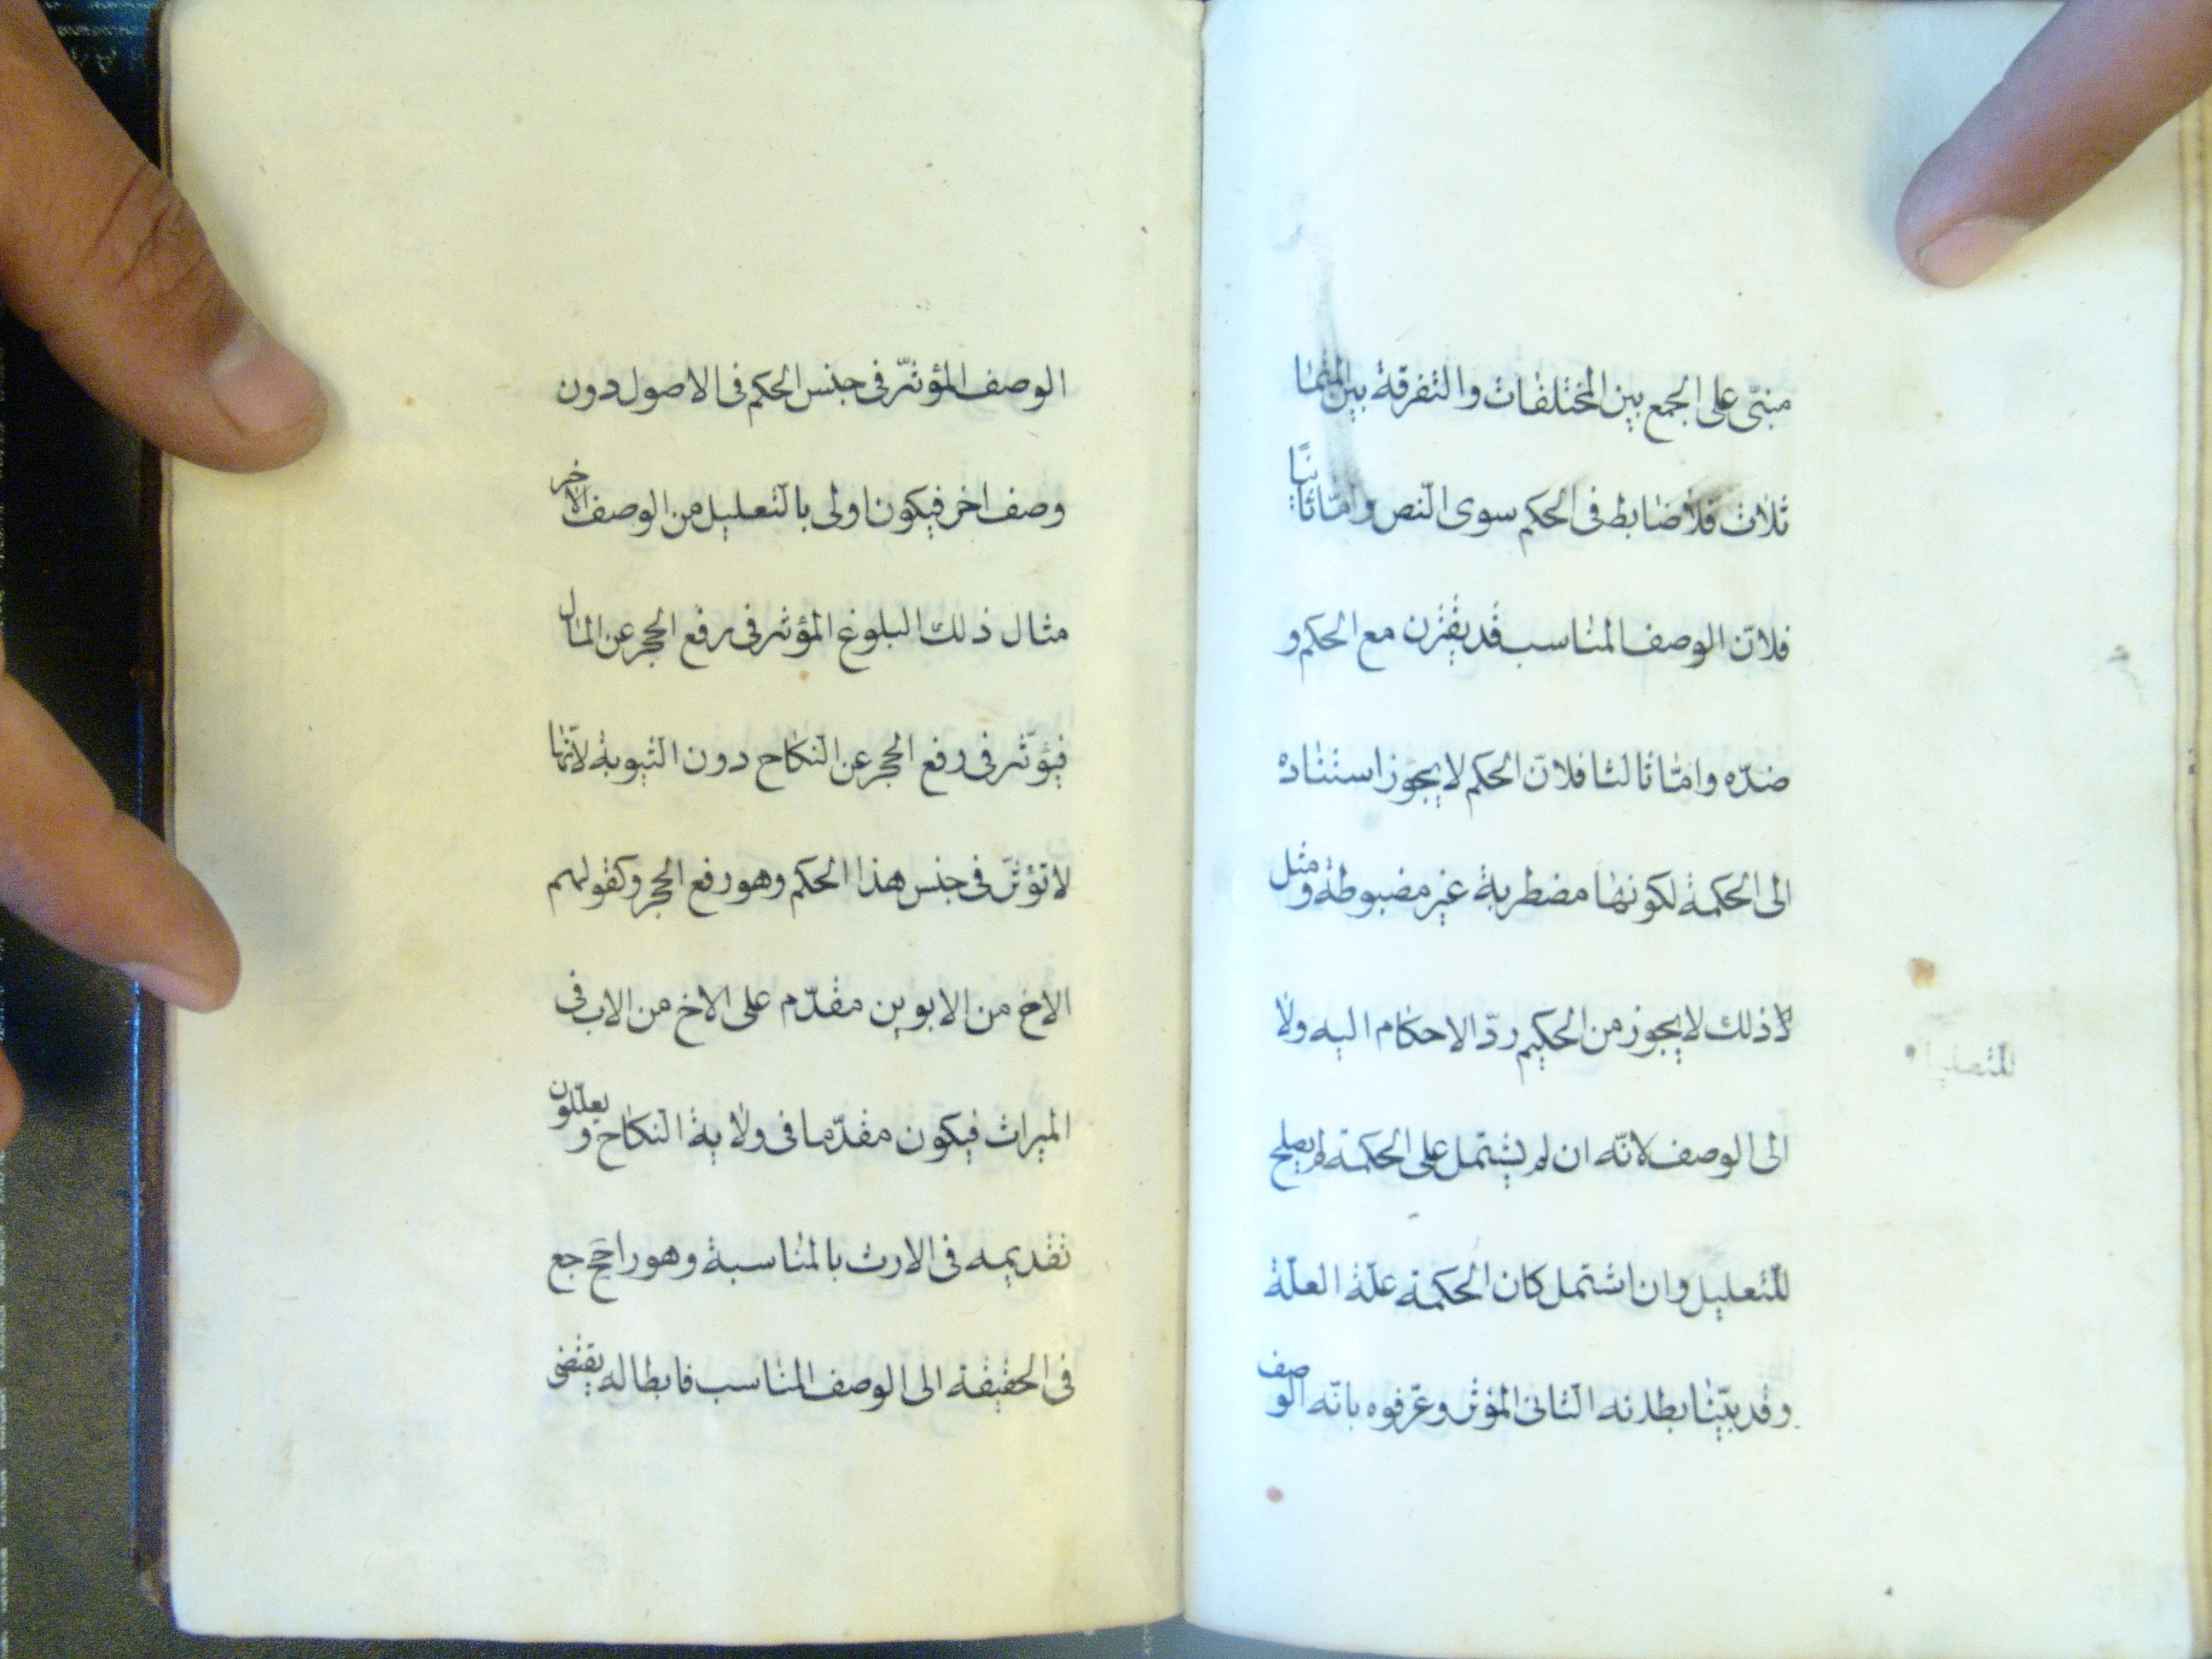 مبنى على الجمع بين المختلفات والتفرقة بين المتماثلات
ثلاث فلا ضابط فى الحكم سوى النص واما ثانيًا
فلانّ الوصف المناسب قد يقترن مع الحكم و
ضدّه وامّا ثالثا فلانّ الحكم لا يجوز استناده
الى الحكمة لكونها مضطربة غير مضبوطة ومثل
ذلك لا يجوز من الحكيم ردّ الاحكام اليه ولا
الى الوصف لانّه ان لم يشتمل على الحكمة لم يصلح
للتّعليل وان اشتمل كان الحكمة علّة العلّة
وقد بيّنا بطلانه الثّانى المؤثر وعرّفوه بانّه الوصف
الوصف المؤثّر فى جنس الحكم فى الاصول دون
وصف اخر فيكون اولى بالتّعليل من الوصف الاخر
مثال ذلك البلوغ المؤثر فى رفع الحجر عن المال
فيؤثّر فى رفع الحجر عن النّكاح دون الثّيوبة لانّها
لا تؤثّر فى جنس هذا الحكم وهو رفع الحجر وكقولهم
الاخ من الابوين مقدّم على الاخ من الاب فى
الميراث فيكون مقدّما فى ولاية النّكاح ويعلّلون
تقديمه فى الارث بالمناسبة وهو راجح جع
فى الحقيقة الى الوصف المناسب فابطاله يقتضى